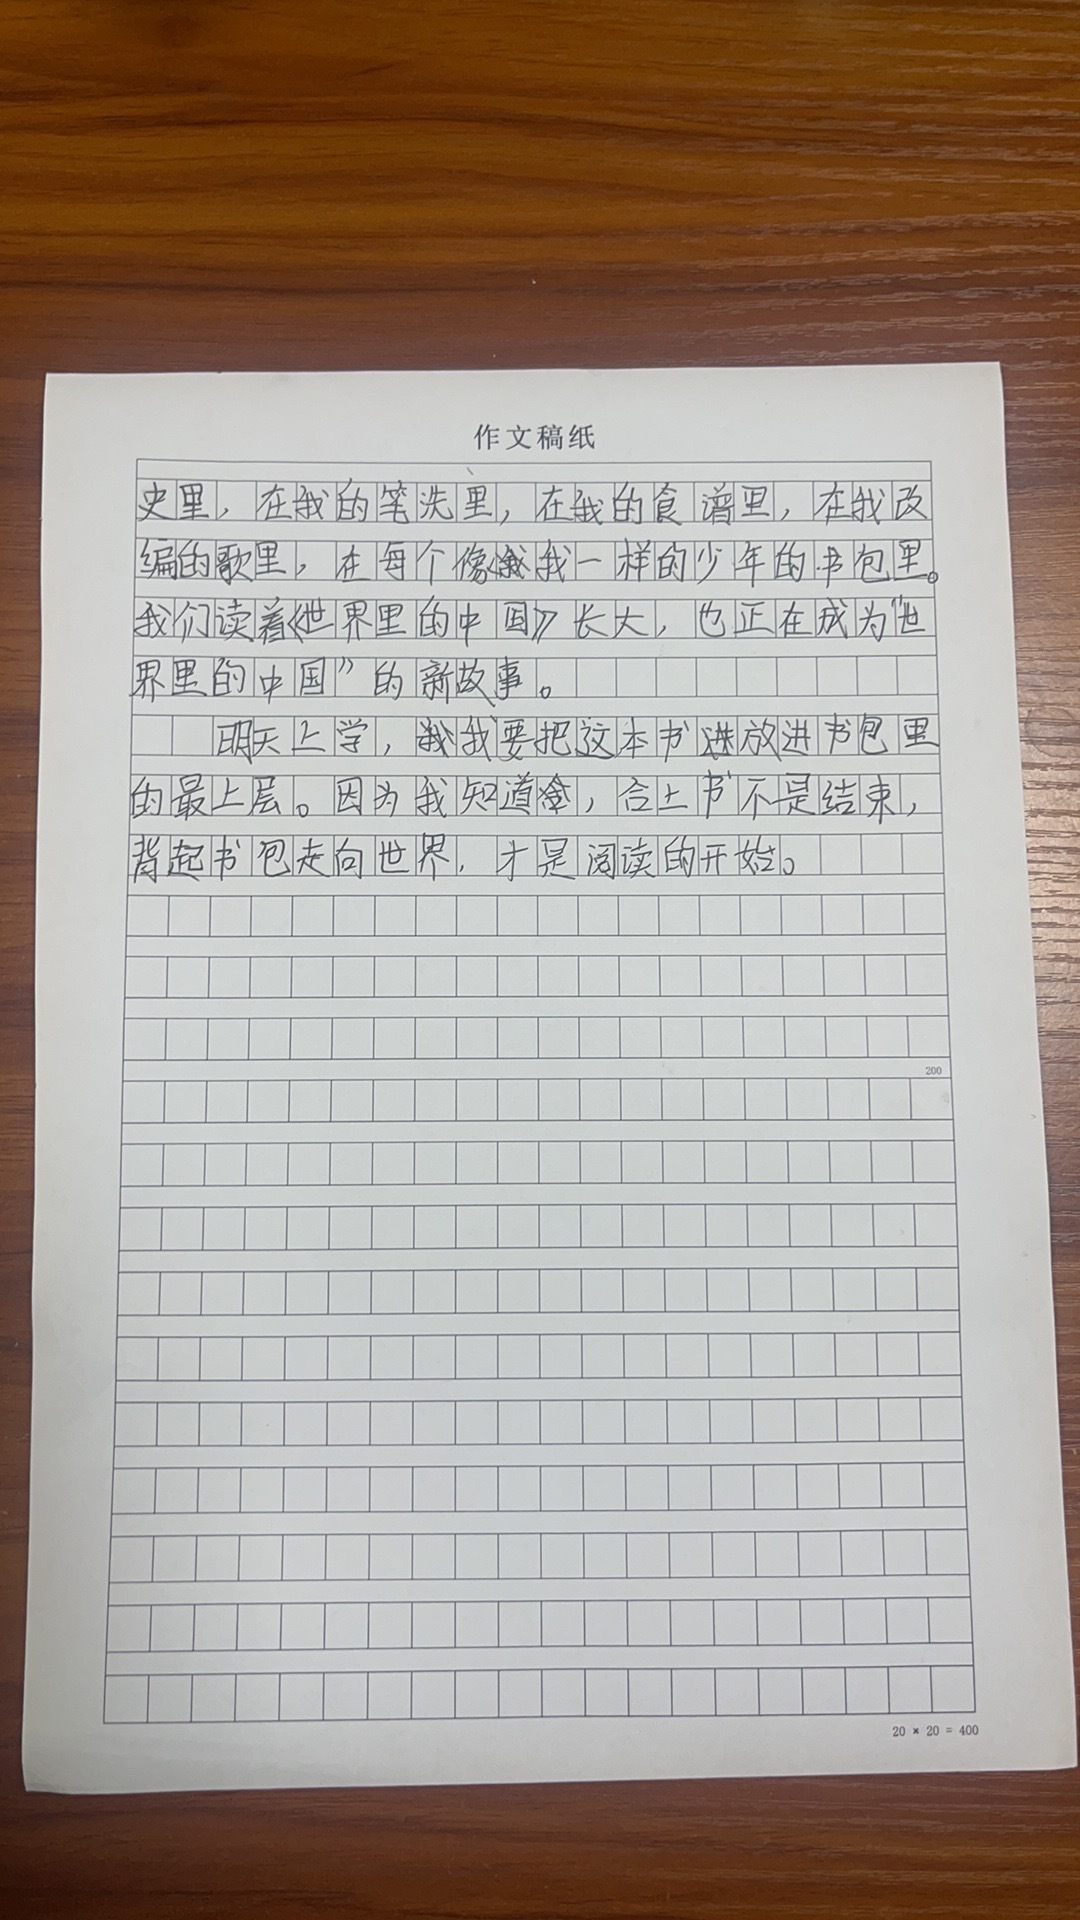 作文稿纸
史里，在我的笔洗里，在我的食谱里，在我改
编的歌里，在每个像我一样的少年的书包里。
我们读着《世界里的中国》长大，也正在成为“世
界里的中国”的新故事。
明天上学，我要把这本书放进书包里
的最上层。因为我知道，合上书不是结束，
背起书包走向世界，才是阅读的开始。
200
20 × 20 = 400